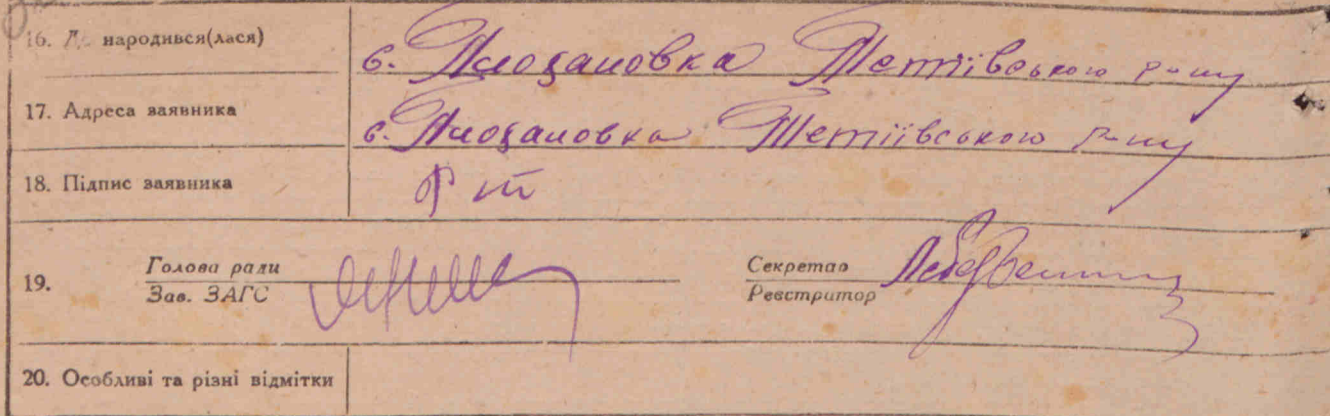 16. Де народився(лася) с. Плозановка Тетіївського р-ну
17. Адреса заявника с. Плозановка Тетіївського р-ну
18. Підпис заявника
19. Голова ради Секретар
Зав. ЗАГС Реєстратор
20. Особливі та різні відмітки